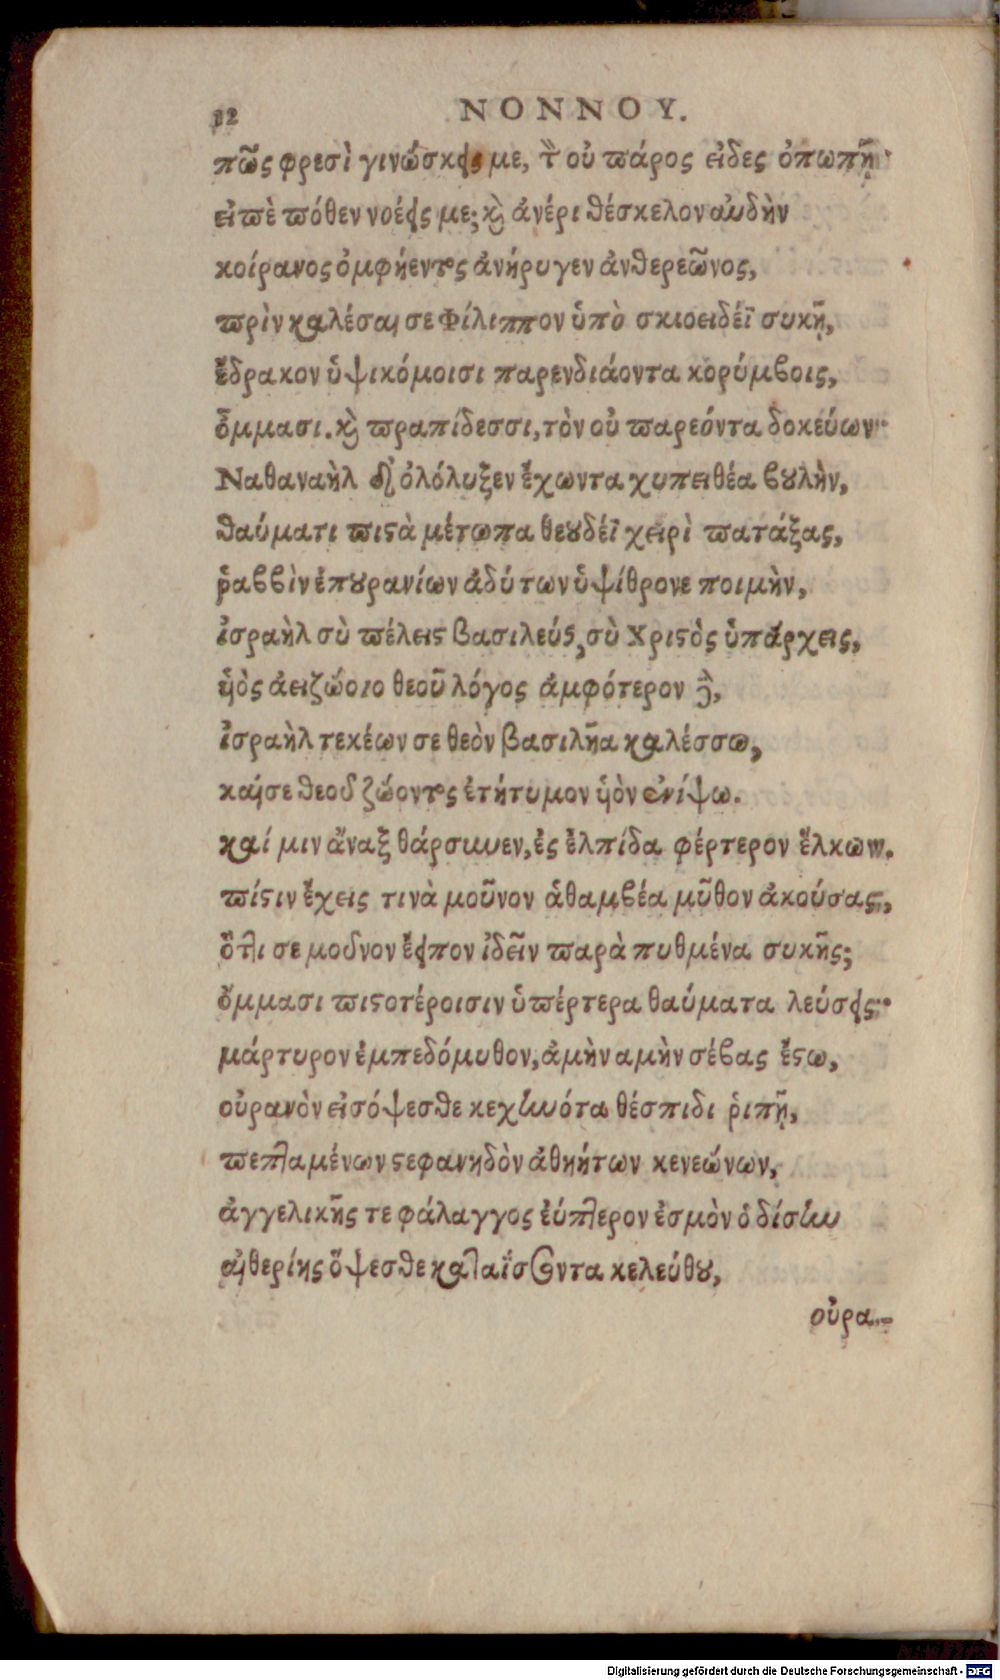 12 ΝΟΝΝΟΥ.
πῶς φρεσὶ γινώσκεις με, τὸν οὐ πάρος εἶδες ὀπωπῇ·
εἰπὲ πόθεν νοέεις με; καὶ ἀνέρι θέσκελον αὐδὴν
κοίρανος ὀμφήεντος ἀνήρυγεν ἀνθερεῶνος,
πρὶν καλέσαι σε Φίλιππον ὑπὸ σκιοειδέϊ συκῇ,
ἔδρακον ὑψικόμοισι παρενδιάοντα κορύμβοις,
ὄμμασι. καὶ πραπίδεσσι, τὸν οὐ παρεόντα δοκεύων·
Ναθαναὴλ δ' ὀλόλυξεν ἔχωντα χυπειθέα βουλὴν,
θαύματι πιστὰ μέτωπα θευδέϊ χειρὶ πατάξας,
ῥαββὶν ἐπουρανίων ἀδύτων ὑψίθρονε ποιμὴν,
ἰσραὴλ σὺ πέλεις βασιλεύς, σὺ Χριστὸς ὑπάρχεις,
ἡὸς ἀειζώοιο θεοῦ λόγος ἀμφότερον γὰρ,
ἰσραὴλ τεκέων σε θεὸν βασιλῆα καλέσσω,
καί σε θεοῦ ζώοντος ἐτήτυμον ἡὸν ἐνίψω.
καί μιν ἄναξ θάρσυνεν, ἐς ἐλπίδα φέρτερον ἕλκων.
πίστιν ἔχεις τινὰ μοῦνον ἀθαμβέα μῦθον ἀκούσας,
ὅττι σε μοῦνον ἔειπον ἰδεῖν παρὰ πυθμένα συκῆς;
ὄμμασι πιστοτέροισιν ὑπέρτερα θαύματα λεύσεις·
μάρτυρον ἐμπεδόμυθον, ἀμὴν αμὴν σέβας ἔστω,
οὐρανὸν εἰσόψεσθε κεχηνότα θέσπιδι ῥιπῇ,
πεπταμένων στεφανηδὸν ἀθηήτων κενεώνων,
ἀγγελικῆς τε φάλαγγος ἐύπτερον ἑσμὸν ὁδίσην
αἰθερίης ὄψεσθε καταΐσσοντα κελεύθου,
οὐρα-
Digitalisierung gefördert durch die Deutsche Forschungsgemeinschaft - DFG